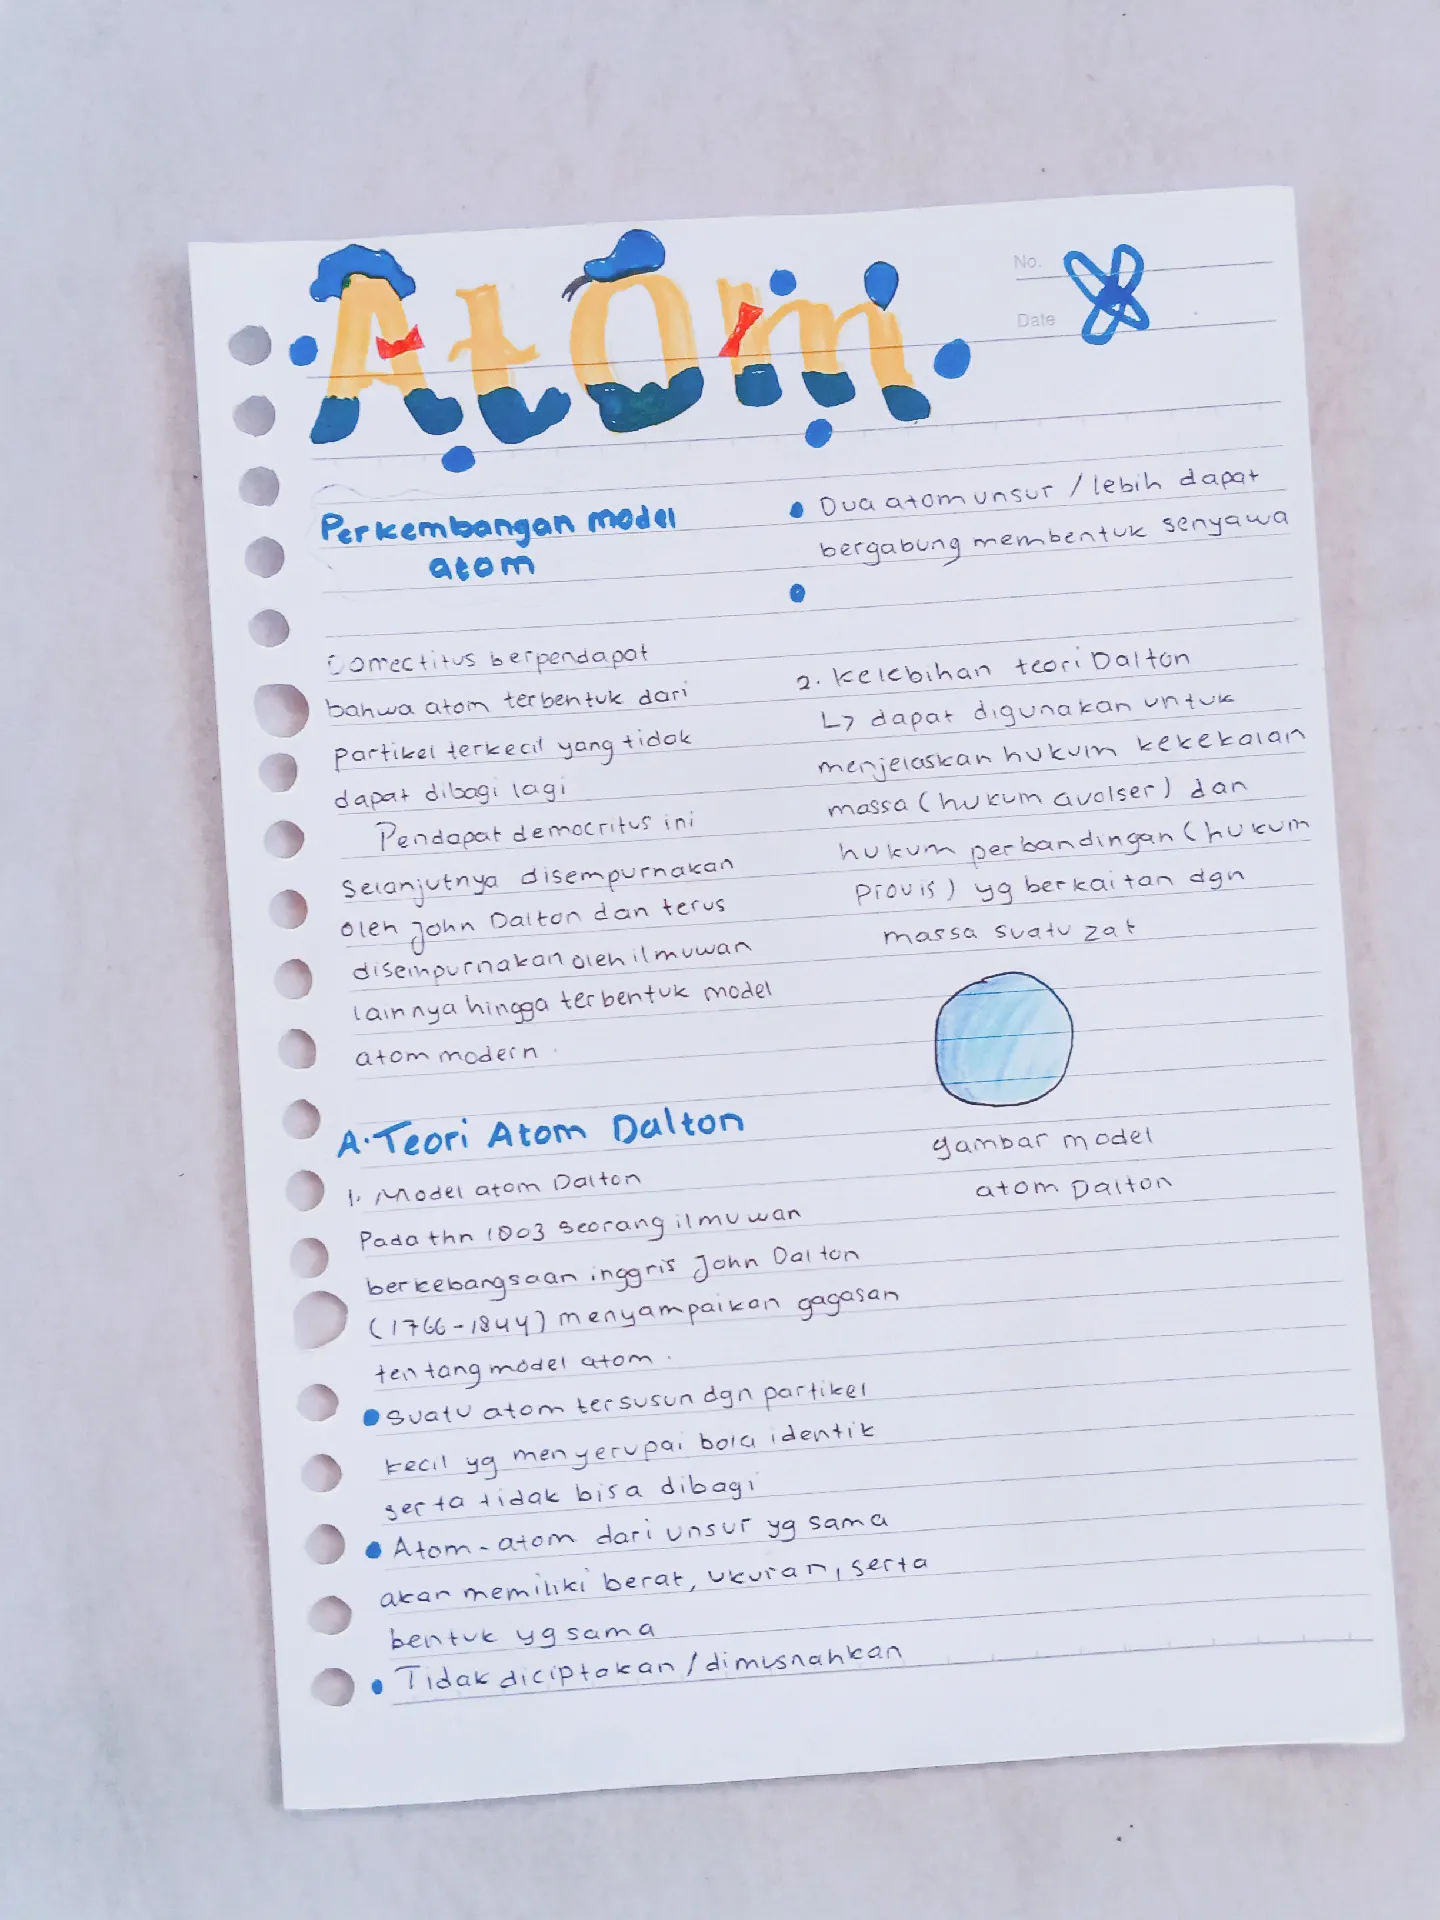 Atom
No.
Date
Perkembangan model
atom
Domectitus berpendapat
bahwa atom terbentuk dari
partikel terkecil yang tidak
dapat dibagi lagi
Pendapat democritus ini
Selanjutnya disempurnakan
oleh John Dalton dan terus
disempurnakan oleh ilmuwan
lainnya hingga terbentuk model
atom modern.
A. Teori Atom Dalton
1. Model atom Dalton
Pada thn 1803 seorang ilmuwan
berkebangsaan inggris John Dalton
(1766-1844) menyampaikan gagasan
tentang model atom.
• Suatu atom tersusun dgn partikel
kecil yg menyerupai bola identik
serta tidak bisa dibagi
• Atom-atom dari unsur yg sama
akan memiliki berat, ukuran, serta
bentuk yg sama
• Tidak diciptakan/dimusnahkan
• Dua atom unsur / lebih dapat
bergabung membentuk senyawa
•
2. Kelebihan teori Dalton
↳ dapat digunakan untuk
menjelaskan hukum kekekalan
massa (hukum avolser) dan
hukum perbandingan (hukum
Provis) yg berkaitan dgn
massa suatu zat
gambar model
atom Dalton